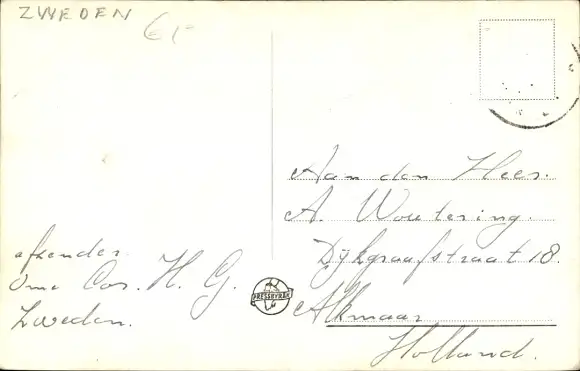 ZWEDEN 6,-
afzender
Ome Cor. H. G.
Zweden.
PRESSBYRÅN
Aan den Heer.
A. Woutering.
Dijkgraafstraat 18.
Alkmaar
Holland.